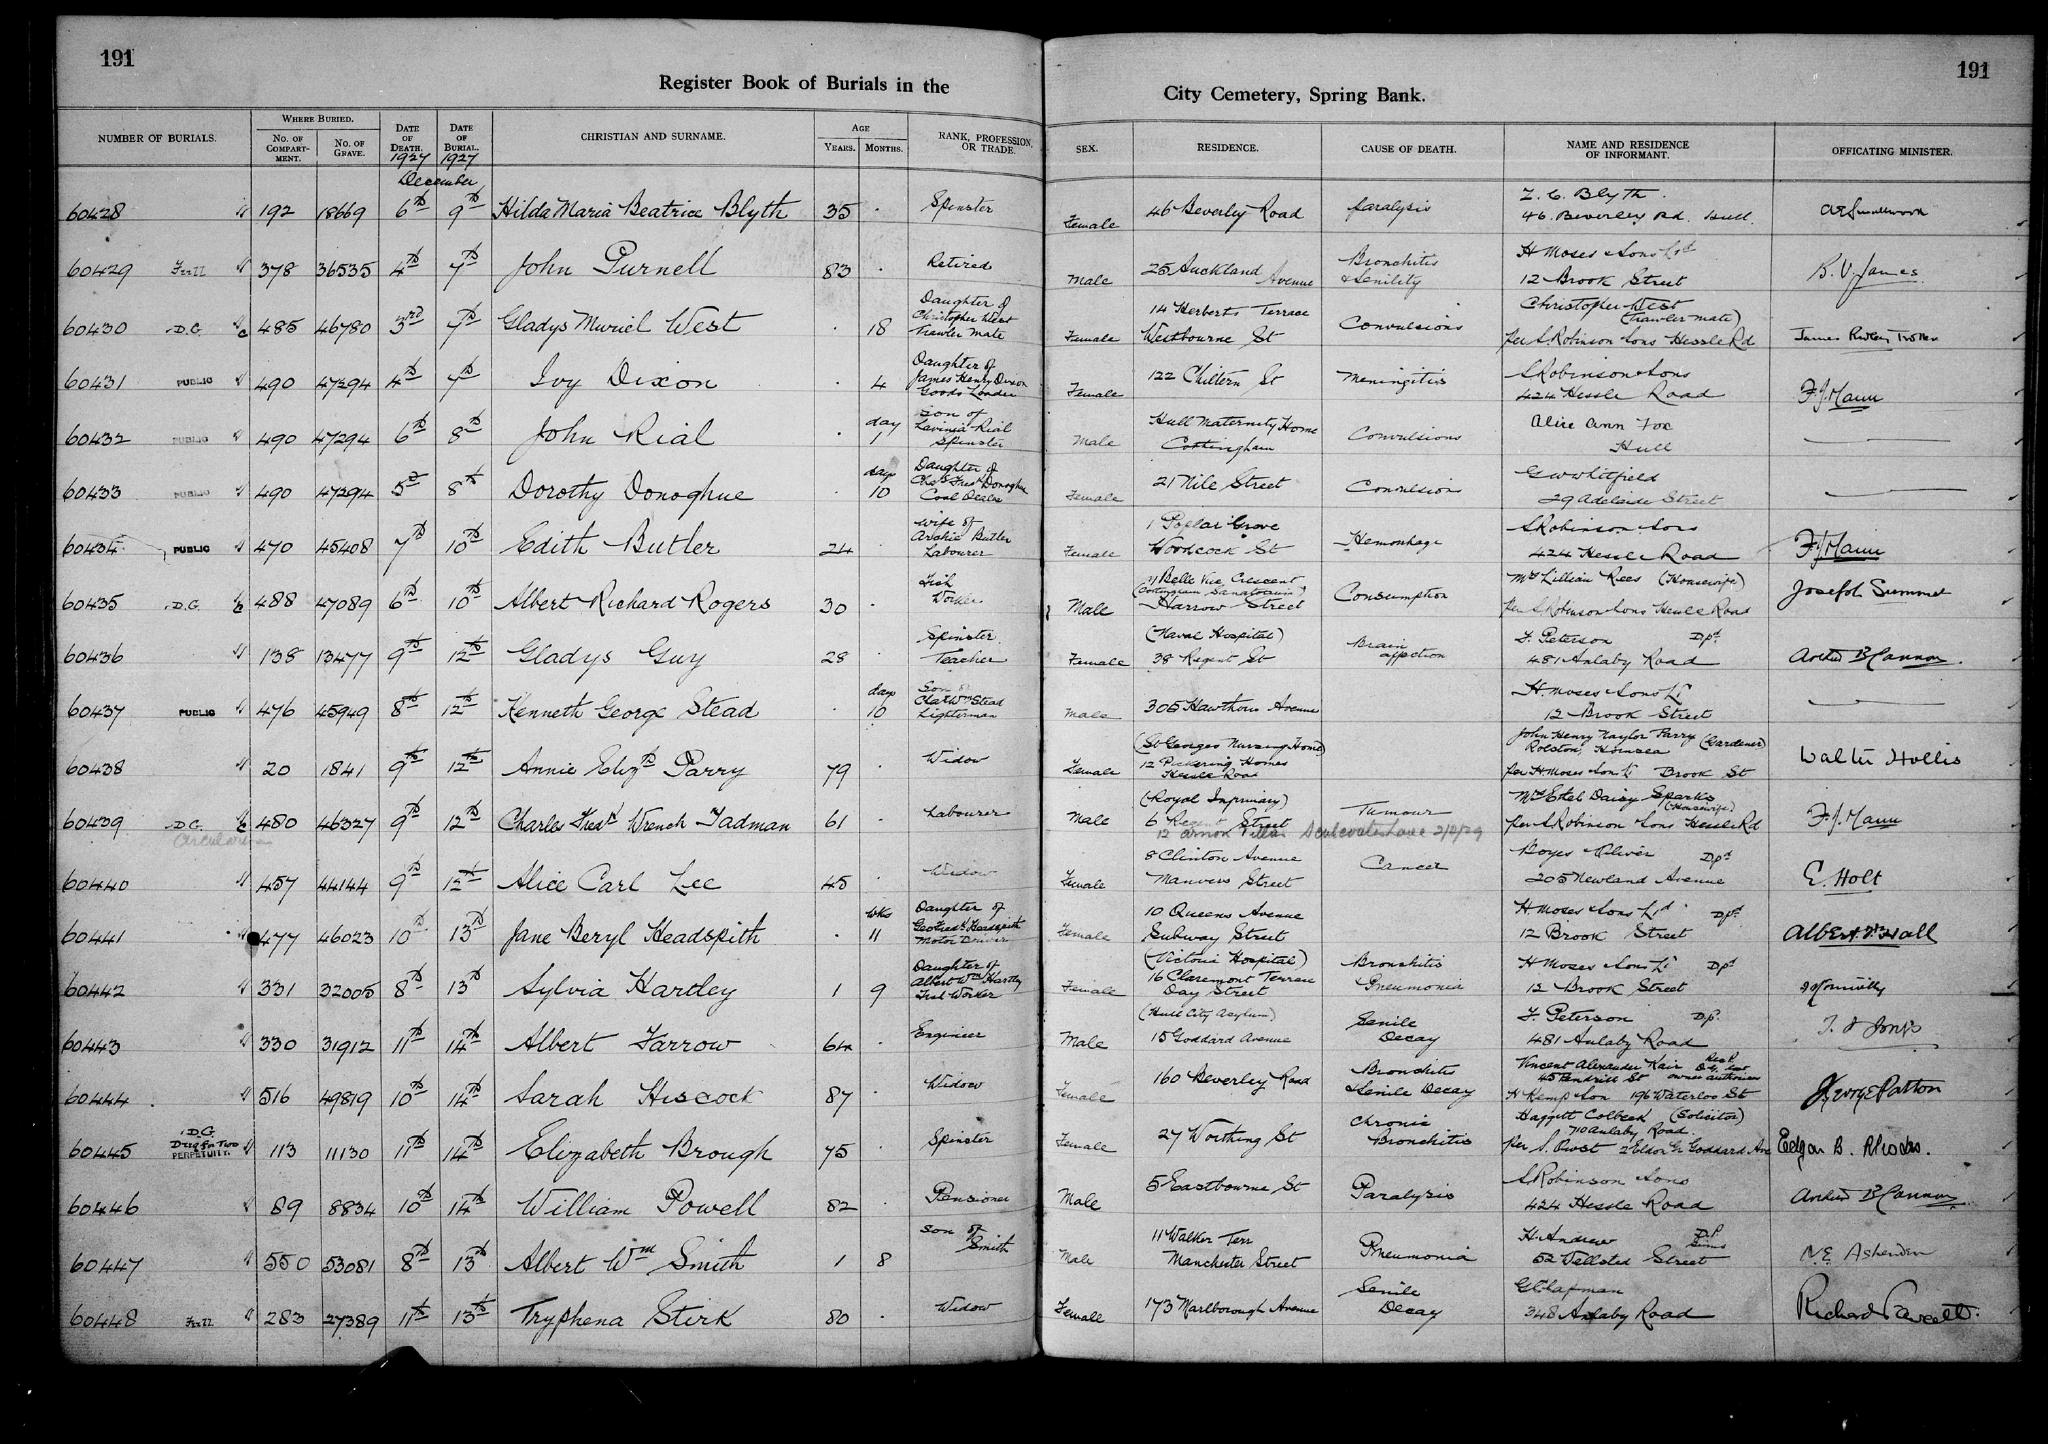 191
191
Register Book of Burials in the City Cemetery, Spring Bank.
NUMBER OF BURIALS. WHERE BURIED. No. OF COMPARTMENT. No. OF GRAVE. DATE OF DEATH. 1927 DATE OF BURIAL. 1927 CHRISTIAN AND SURNAME. AGE YEARS. MONTHS. RANK, PROFESSION, OR TRADE. SEX. RESIDENCE. CAUSE OF DEATH. NAME AND RESIDENCE OF INFORMANT. OFFICATING MINISTER.
December
60428 192 18669 6th 9th Hilda Maria Beatrice Blyth 35 . Spinster Female 46 Beverley Road Paralysis Blyth 46. Beverley Rd. Hull
60429 Full 378 36535 4th 7th John Purnell 83 . Retired Male 25 Auckland Avenue Bronchitis & Senility H Moses & Sons Ltd 12 Brook Street R. V. James
60430 D.G. 485 46780 3rd 7th Gladys Muriel West . 18 Daughter of Christopher West Trawler Mate Female 14 Herberts Terrace Westbourne St Convulsions Christopher West (Trawler mate) per S Robinson & Sons Hessle Rd James
60431 PUBLIC 490 47294 4th 7th Ivy Dixon . 4 Daughter of James Henry Dixon Goods Loader Female 122 Chiltern St Meningitis S Robinson & Sons 424 Hessle Road F. J. Mann
60432 PUBLIC 490 47294 6th 8th John Rial . day 1 Son of Lavinia Rial Spinster Male Hull Maternity Home Cottingham Convulsions Alice Ann Fox Hull
60433 PUBLIC 490 47294 5th 8th Dorothy Donoghue . days 10 Daughter of Chas Fred Donoghue Coal Dealer Female 21 Nile Street Convulsions G W Whitfield 29 Adelaide Street
60434 PUBLIC 470 45408 7th 10th Edith Butler 24 . Wife of Archie Butler Labourer Female 1 Poplar Grove Woodcock St Hemorrhage S Robinson & Sons 424 Hessle Road F. J. Mann
60435 D.G. 488 47089 6th 10th Albert Richard Rogers 30 . Fish Worker Male 11 Belle Vue Crescent (Cottingham Sanatorium) Harrow Street Consumption Mrs Lillian Rees (Housewife) per S Robinson & Sons Hessle Road Joseph Summer
60436 138 13477 9th 12th Gladys Guy 28 . Spinster Teacher Female (Naval Hospital) 38 Regent St Brain affection F. Peterson Dpt. 481 Anlaby Road Arthur B Cannon.
60437 PUBLIC 476 45949 8th 12th Kenneth George Stead . days 10 Son of Chas Wm Stead Lighterman Male 305 Hawthorn Avenue H. Moses & Sons Ltd 12 Brook Street
60438 20 1841 9th 12th Annie Elizth Parry 79 . Widow Female (St Georges Nursing Home) 12 Pickering Homes Hessle Road John Henry Naylor Parry (Gardener) Rolston, Hornsea per H. Moses & Son Ltd Brook St Walter Hollis
60439 D.G. 480 46327 9th 12th Charles Fredk Wrench Tadman 61 . Labourer Male (Royal Infirmary) 6 Regent Street Tumour Mrs Ethel Daisy Sparks (Housewife) per S Robinson & Sons Hessle Rd F. J. Mann
60440 457 44144 9th 12th Alice Carl Lee 45 . Widow Female 8 Clinton Avenue Manvers Street Cancer Boyes & Oliver Dpt 205 Newland Avenue E. Holt
60441 477 46023 10th 13th Jane Beryl Headspith . wks 11 Daughter of Geo Fredk Headspith Motor Driver Female 10 Queens Avenue Subway Street H. Moses & Sons Ltd Dpt 12 Brook Street Albert Hall
60442 331 32005 8th 13th Sylvia Hartley 1 9 Daughter of Albert Wm Hartley Fish Worker Female (Victoria Hospital) 16 Claremont Terrace Day Street Bronchitis Pneumonia H Moses & Sons Ltd Dpt 12 Brook Street
60443 330 31912 11th 14th Albert Farrow 64 . Engineer Male (Hull City Asylum) 15 Goddard Avenue Senile Decay F. Peterson Dpt. 481 Anlaby Road
60444 516 49819 10th 14th Sarah Hiscock 87 . Widow Female 160 Beverley Road Bronchitis & Senile Decay Vincent Alexander Kair 45 Pendrill St H Kemp & Son 196 Waterloo St George Patton
60445 D.G. Drug for Two PERPETUITY. 113 11130 11th 14th Elizabeth Brough 75 . Spinster Female 27 Worthing St Chronic Bronchitis Haggitt Colbeck (Solicitor) 710 Anlaby Road. per S. 2 Eldon Gr Goddard Ave Edgar B. Rhodes.
60446 89 8834 10th 14th William Powell 82 . Pensioner Male 5 Eastbourne St Paralysis S Robinson & Sons 424 Hessle Road Arthur B Cannon
60447 550 53081 8th 13th Albert Wm Smith 1 8 Son of Smith Male 11 Walker Terr Manchester Street Pneumonia H. Andrew 52 Wellsted Street
60448 Full 283 27389 11th 13th Tryphena Stirk 80 . Widow Female 173 Marlborough Avenue Senile Decay G Chapman 348 Anlaby Road Richard Fawcett.